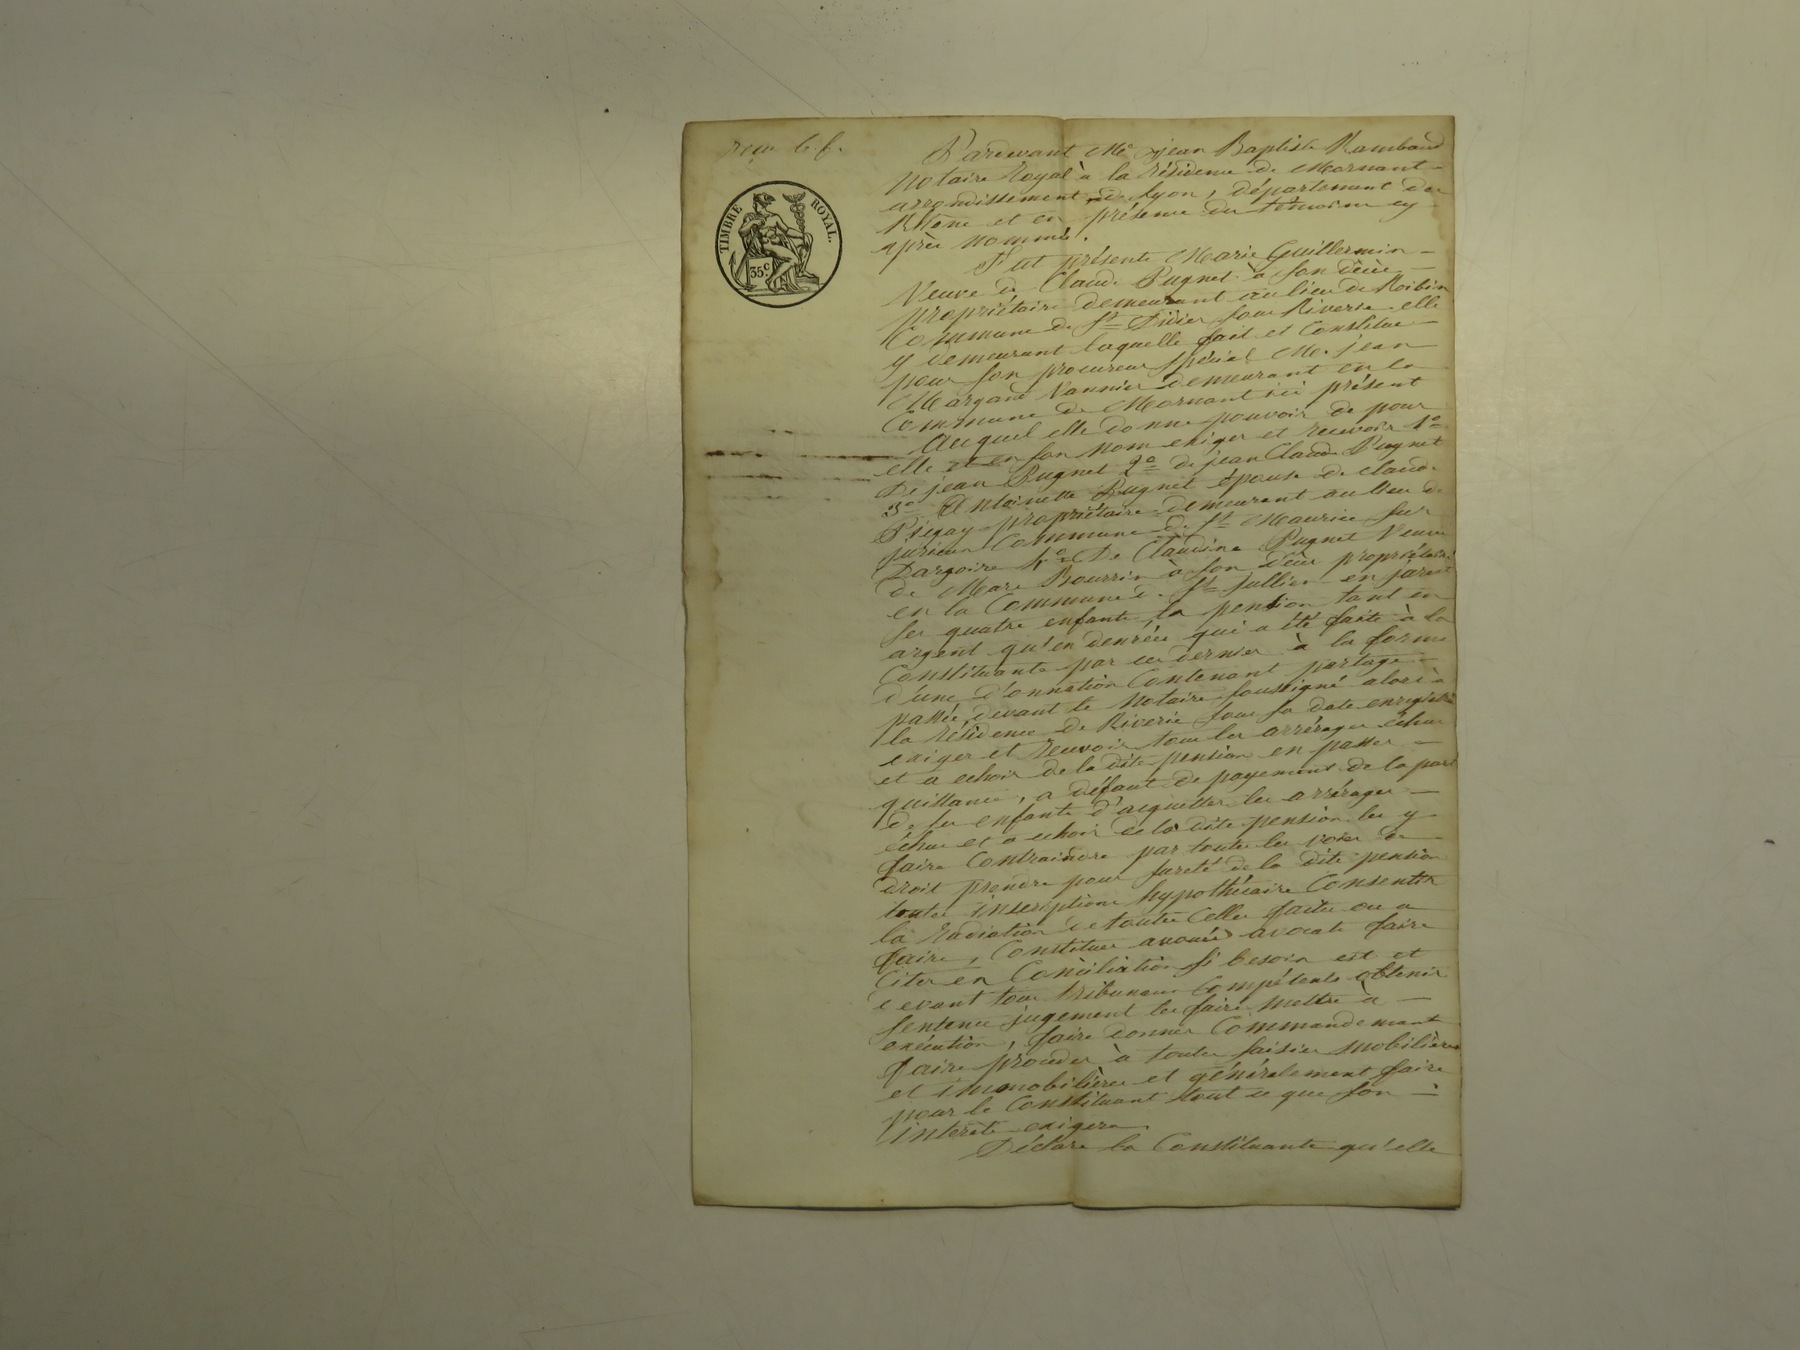 reçu 6. f.
TIMBRE ROYAL.
35 c
Pardevant Me jean Baptiste Rambaud
Notaire Royal à la résidence de Mornant
arrondissement de Lyon, département du
Rhône et en présence des témoins cy
après nommés.
Fut présente Marie Guillermin
Veuve de Claude Pugnet à son décès
propriétaire demeurant au lieu de Roibin
Commune de St Didier sous Riverie elle
y demeurant laquelle fait et Constitue
pour son procureur spécial M. jean
Margand Vannier demeurant en la
Commune de Mornant ici présent
Auquel elle donne pouvoir de pour
elle et en son Nom exiger et recevoir 1º
De jean Pugnet 2º de jean Claude Pugnet
3º Antoinette Pugnet épouse de claude
Piegay propriétaire demeurant au lieu de
jurieux Commune de St Maurice sur
Dargoire 4º De Claudine Pugnet Veuve
de Marc Bourrin à son décès propriétaire
en la Commune de St Jullien en jarest
ses quatre enfants la pension tant en
argent qu'en denrées qui a été faite à la
Constituante par ces derniers à la forme
d'une donnation Contenant partage
passée devant le Notaire soussigné alors à
la résidence de Riverie sous sa date enregistré
exiger et recevoir tous les arrérages échus
et a echoir de la dite pension en passer
quittance, a défaut de payement de la part
de ses enfants d'acquitter les arrérages
échus et a echoir de la dite pension les y
faire Contraindre par toutes les voies de
droit prendre pour sureté de la dite pension
toutes inscriptions hypothécaire Consentir
la radiation de toutes Celles faites ou a
faire, Constituer avoués avocats faire
Citer en Conciliation si besoin est et
devant tous tribunaux Compétents obtenir
sentence jugement les faire mettre à
exécution, faire donner Commandemant
faire procéder à toutes saisies mobilières
et immobilières et généralement faire
pour le Constituant tout ce que son
interêts exigera.
Déclare la Constituante qu'elle